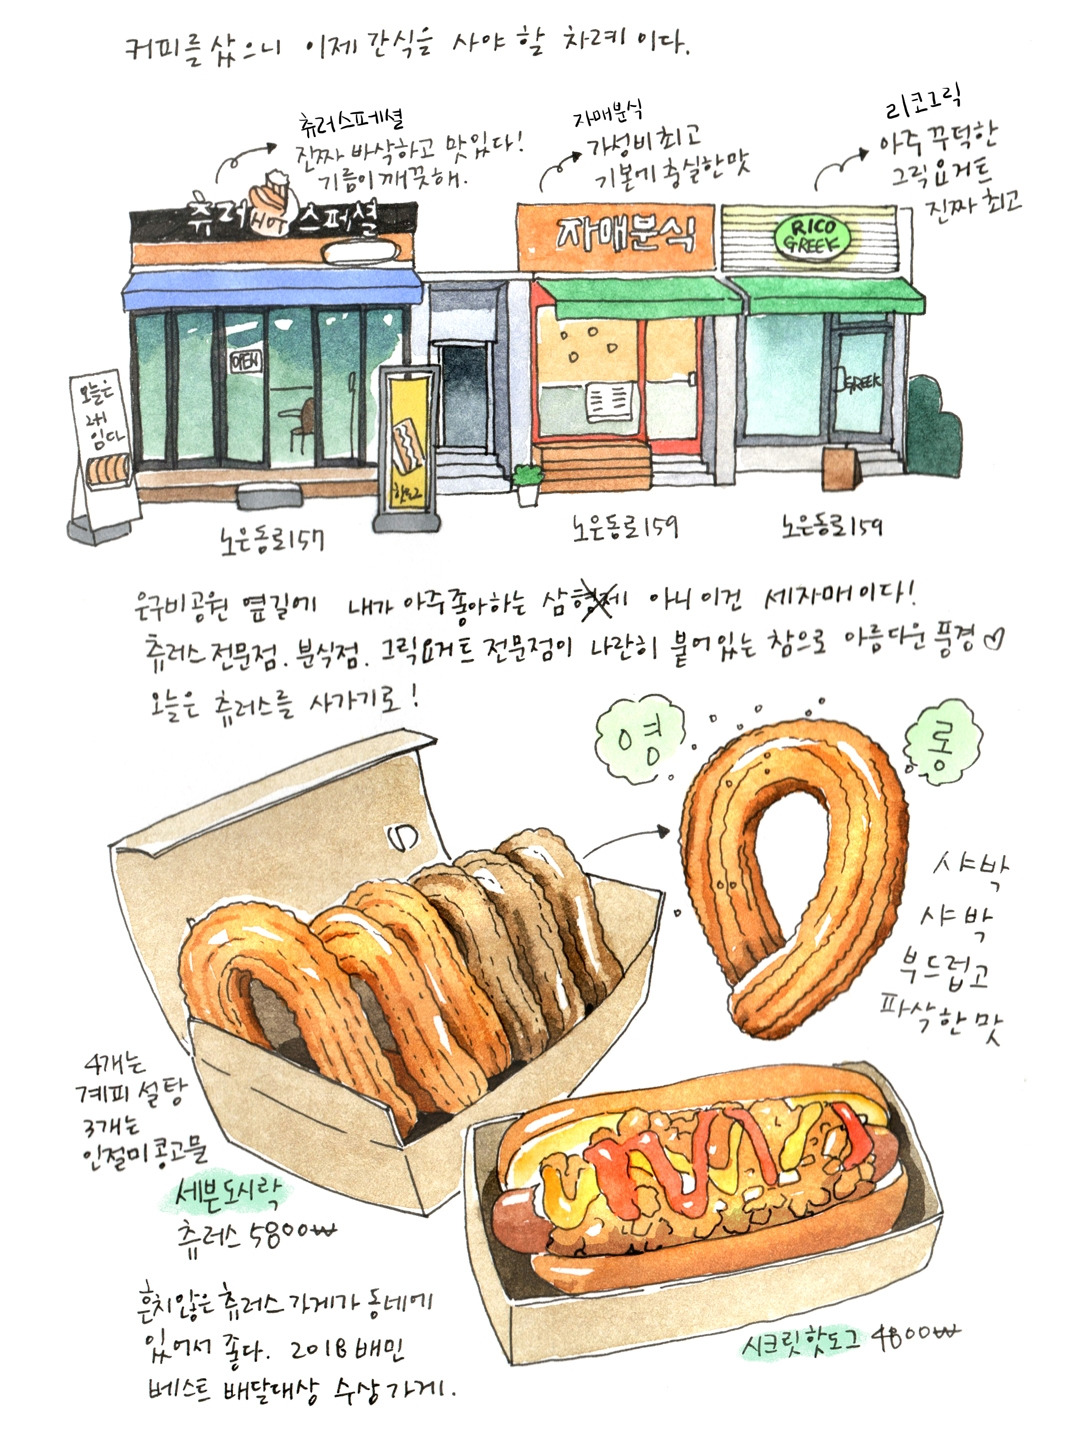 커피를 샀으니 이제 간식을 사야 할 차례이다.
츄러스페셜
진짜 바삭하고 맛있다!
기름이 깨끗해.
자매분식
가성비 최고
기본에 충실한 맛
리코그릭
아주 꾸덕한
그릭요거트
진짜 최고
츄러 스퍼셜
자매분식
RICO
GREEK
OPEN
GREEK
오늘은
입다
핫도그
노은동로157
노은동로159
노은동로159
은구비공원 옆길에 내가 아주 좋아하는 삼형제 아니 이건 세자매이다!
츄러스 전문점. 분식점. 그릭요거트 전문점이 나란히 붙어있는 참으로 아름다운 풍경♡
오늘은 츄러스를 사가기로!
영
롱
샤박
샤박
부드럽고
파삭한 맛
4개는
계피 설탕
3개는
인절미콩고물
세븐도시락
츄러스 5800₩
흔치않은 츄러스 가게가 동네에
있어서 좋다. 2018 배민
베스트 배달대상 수상가게.
시크릿핫도그 4800₩